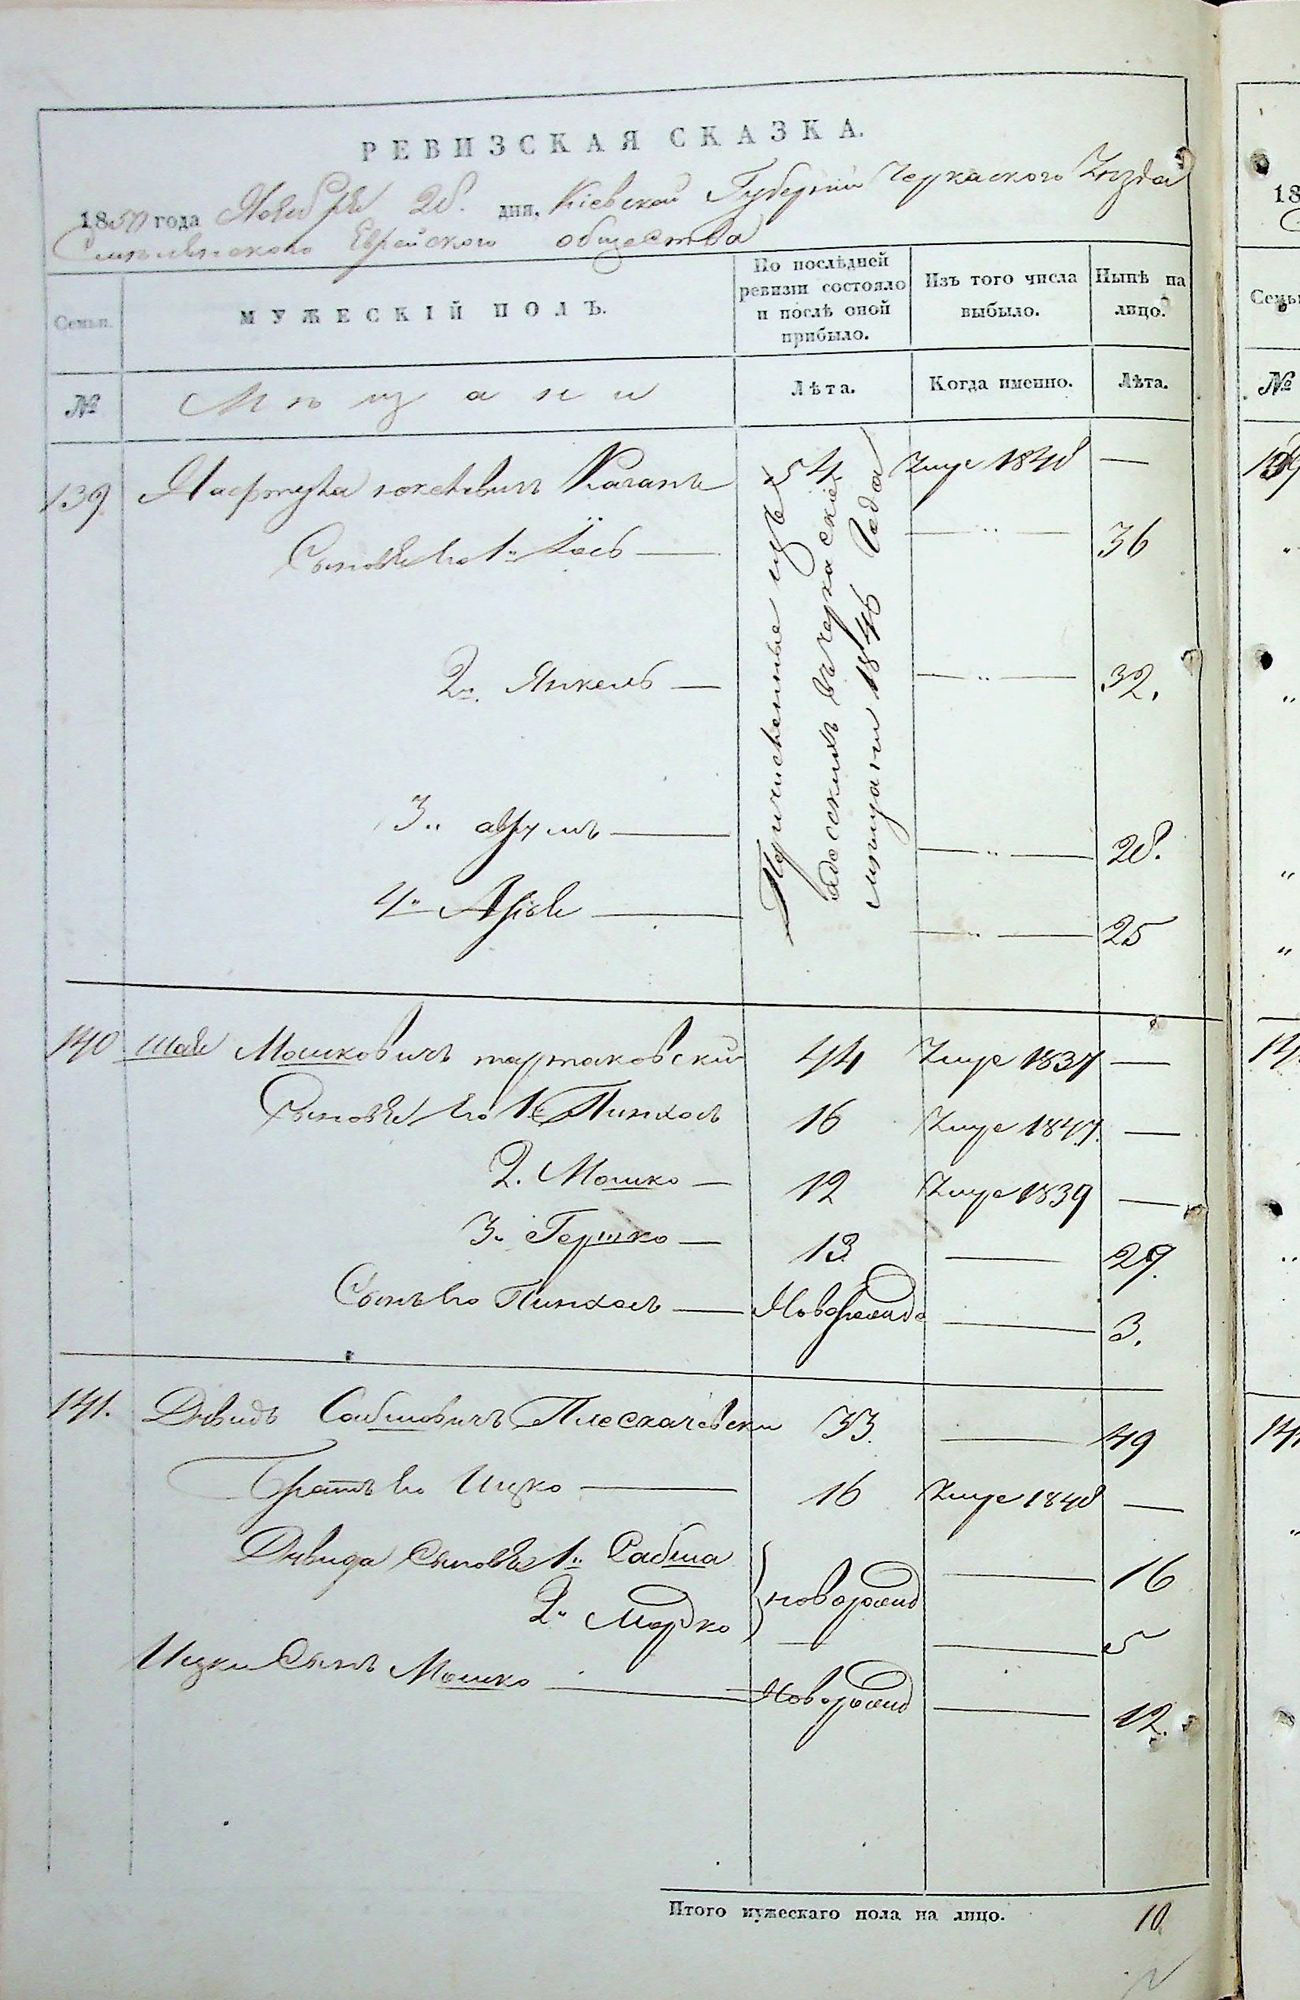 РЕВИЗСКАЯ СКАЗКА.
1850 года Ноября 28. дня. Кіевской Губерніи Черкаского Уезда
Смелянского Еврейского общества
Семьи.
МУЖЕСКІЙ ПОЛЪ.
По послѣдней ревизіи состояло и послѣ оной прибыло.
Изъ того числа выбыло.
Нынѣ на лицо.
№
Мѣщани
Лѣта.
Когда именно.
Лѣта.
139 Каганъ 54 Умре 1848 —
Сыновья его 1й Іось — — " — 36
2й. Янкель — — " — 32.
3й аврумъ — — " — 28.
4й Арье — — " — 25
Причисленные изъ
одесскихъ въ черкаские
мещани 1846 Года
140 Шая Мошковичъ тартаковскій 44 Умре 1837 —
Сыновья его 1й Пинхось 16 Умре 1847. —
2. Мошко — 12 Умре 1839 —
3й Гершко — 13 — 29.
Сынъ его Пинхось — Новорожд — 3.
141. Давидъ Сабшовичъ Плескачевски 33. — 49
Братъ его Ицко — 16 Умре 1848 —
Давида Сыновья 1й Сабша } новорожд — 16
2й Мордко — 5
Ицки Сынъ Мошко — Новорожд — 12.
Итого мужескаго пола на лицо. 10